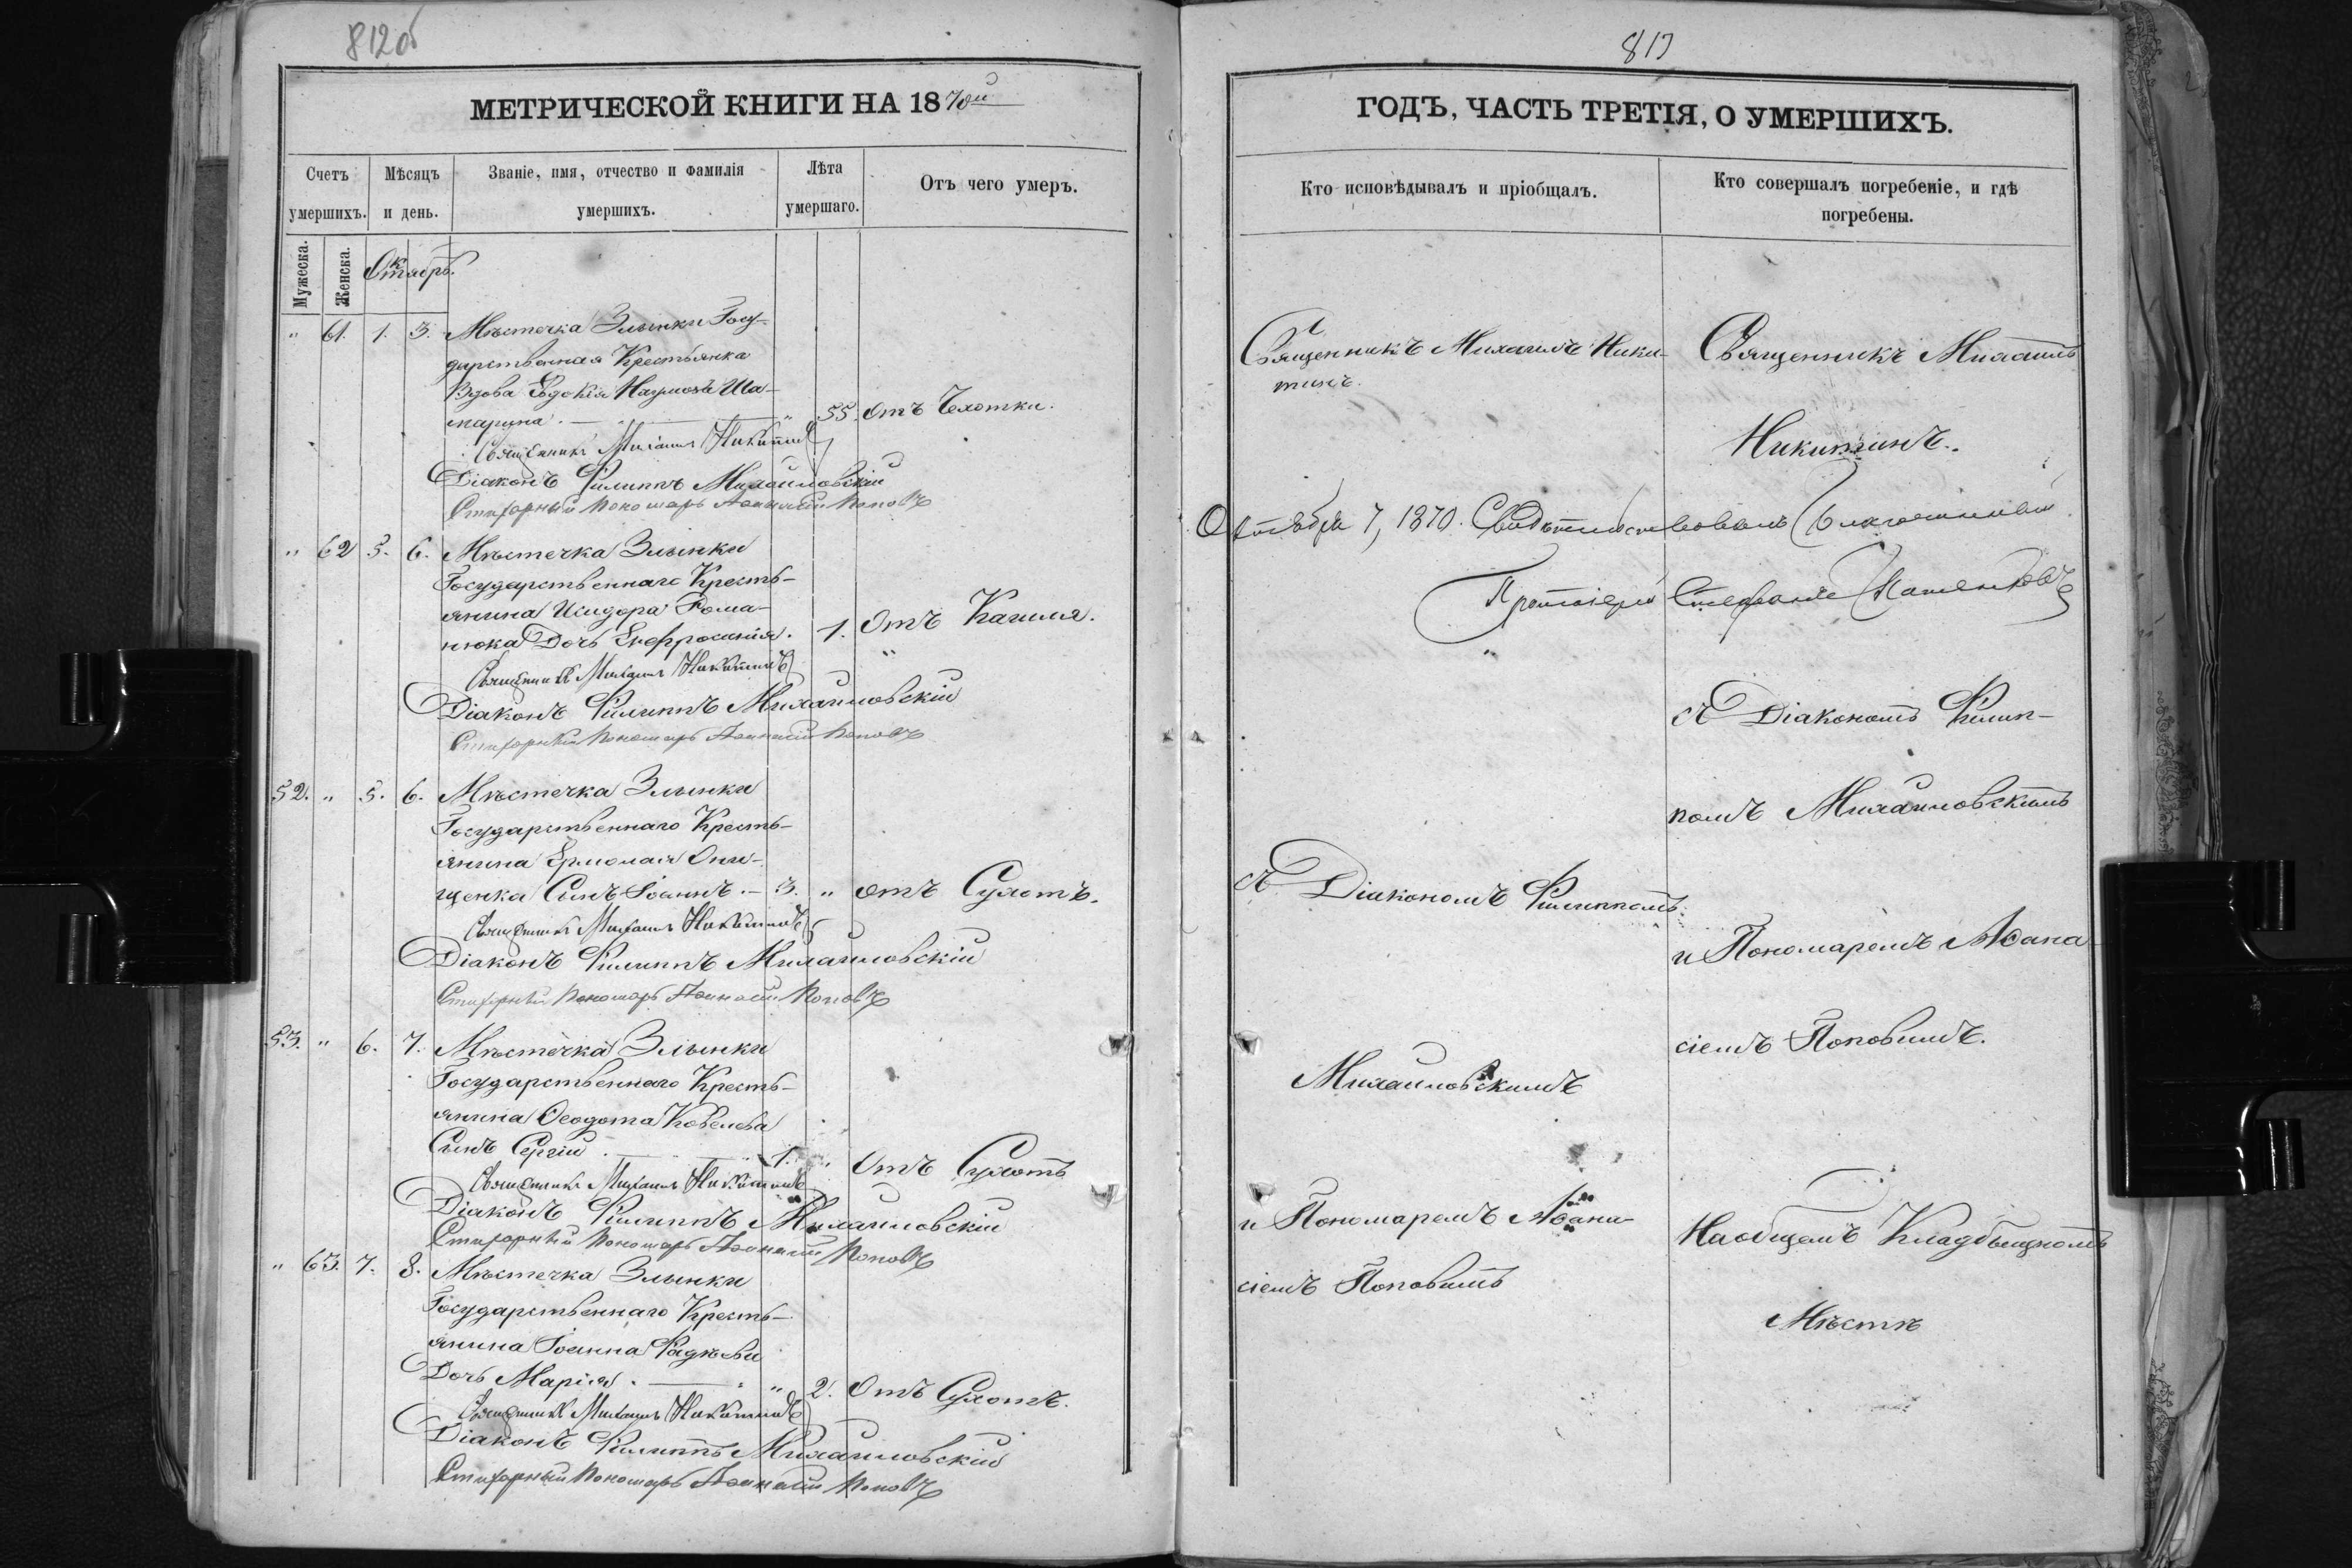 812об
МЕТРИЧЕСКОЙ КНИГИ НА 1870й
Счетъ умершихъ.
Мѣсяцъ и день.
Званіе, имя, отчество и фамилія умершихъ.
Лѣта умершаго.
Отъ чего умеръ.
Мужеска.
Женска.
Октябрь.
" 61. 1. 3. Мѣстечка Злынки Госу-
дарственная Крестьянка
Вдова Евдокія Наумова Ша-
марина. " 55. отъ Чахотки.
Священникъ Михаилъ Никитинъ
Діаконъ Филиппъ Михайловскій
Стихарный Пономарь Аѳанасій Поповъ
" 62 5. 6. Мѣстечка Злынки
Государственнаго Кресть-
янина Исидора Рома-
нюка Дочь Евфросинія. 1. Отъ Кашля.
Священникъ Михаилъ Никитинъ
Діаконъ Филиппъ Михайловскій
Стихарный Пономарь Аѳанасій Поповъ
52. " 5. 6. Мѣстечка Злынки
Государственнаго Кресть-
янина Ермолая Они-
щенка Сынъ Іоаннъ. 3. " отъ Сухотъ.
Священникъ Михаилъ Никитинъ
Діаконъ Филиппъ Михайловскій
Стихарный Пономарь Аѳанасій Поповъ
53. " 6. 7. Мѣстечка Злынки
Государственнаго Кресть-
янина Ѳеодота Ковалева
Сынъ Сергій. 1. " Отъ Сухотъ
Священникъ Михаилъ Никитинъ
Діаконъ Филиппъ Михайловскій
Стихарный Пономарь Аѳанасій Поповъ
" 63. 7. 8. Мѣстечка Злынки
Государственнаго Кресть-
янина Іоанна
Дочь Марія. " 2. Отъ Сухотъ.
Священникъ Михаилъ Никитинъ
Діаконъ Филиппъ Михайловскій
Стихарный Пономарь Аѳанасій Поповъ
813
ГОДЪ, ЧАСТЬ ТРЕТІЯ, О УМЕРШИХЪ.
Кто исповѣдывалъ и пріобщалъ.
Кто совершалъ погребеніе, и гдѣ погребены.
Священникъ Михаилъ Ники-
тинъ.
Священникъ Михаилъ
Никитинъ.
Октября 7, 1870. Свидѣтельствовалъ Благочинный
Протоіерей Стефанъ
"
съ Діакономъ Филип-
помъ Михайловскимъ
съ Діакономъ Филиппомъ
и Пономаремъ Аѳана-
сіемъ Поповымъ.
Михайловскимъ
и Пономаремъ Аѳана-
сіемъ Поповымъ
На общемъ Кладбищномъ
Мѣстѣ